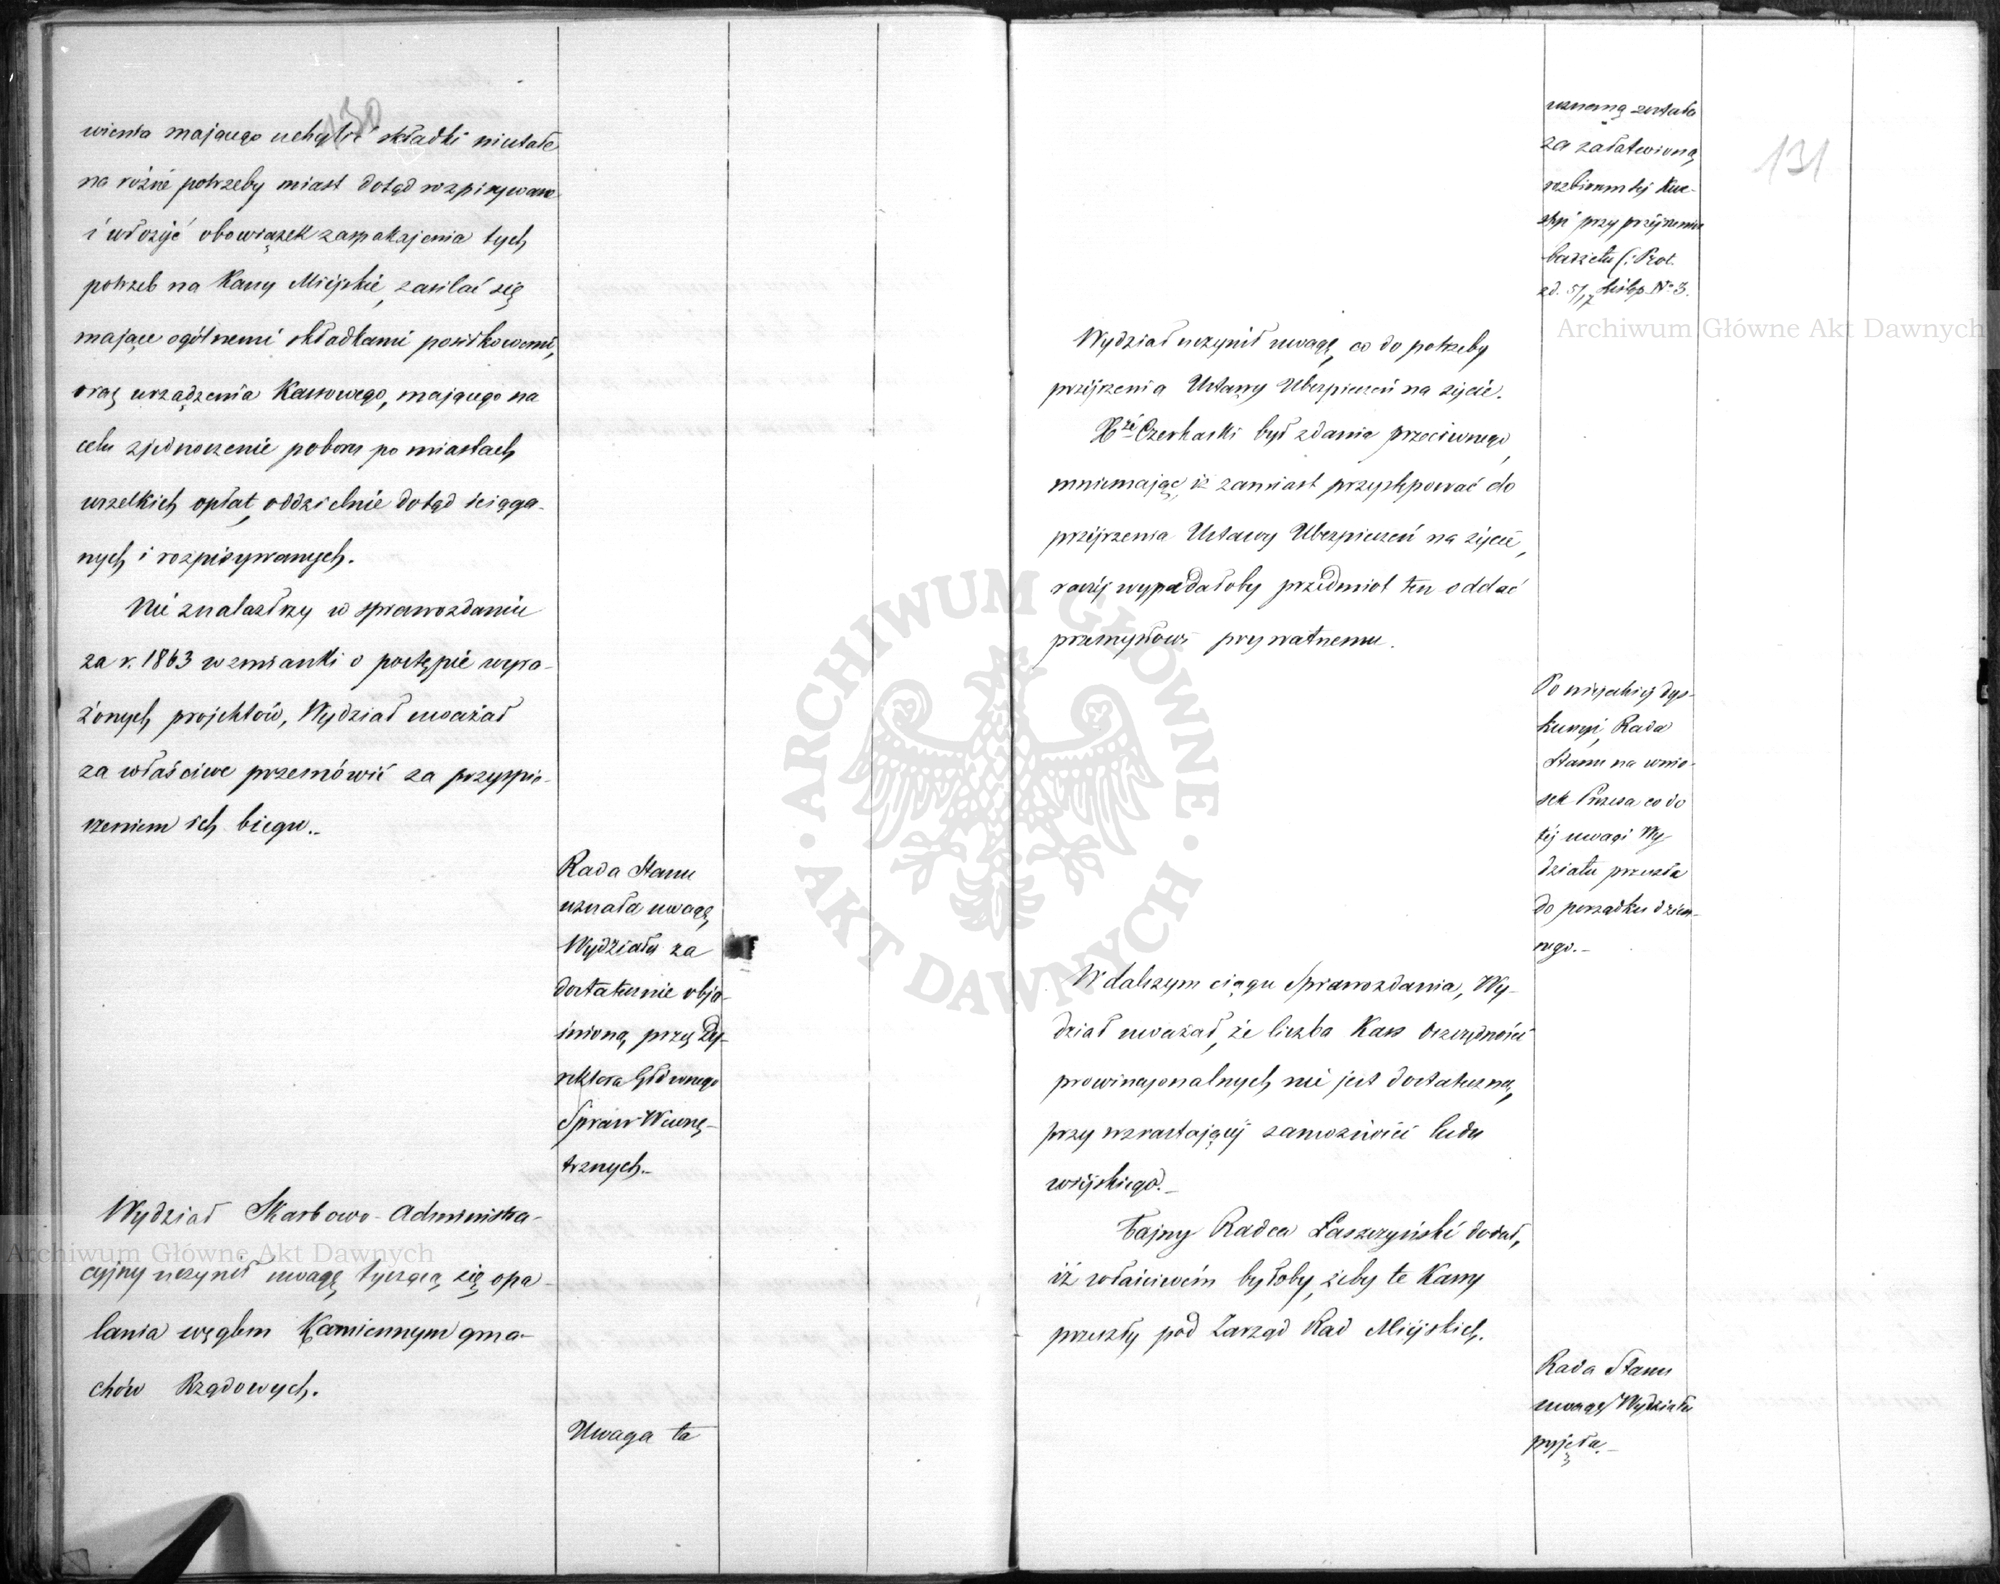 130
wienia mającego uchylić składki niestałe
na różne potrzeby miast dotąd rozpisywane
i włożyć obowiązek zaspakajenia tych
potrzeb na Kassy Miejskie, zasilać się
mające ogólnemi składkami posiłkowemi,
oraz urządzenia Kassowego, mającego na
celu zjednoczenie poboru po miastach
wszelkich opłat, oddzielnie dotąd ściąga-
nych i rozpisywanych.
Nie znalazłszy w sprawozdaniu
za r. 1863 wzmianki o postępie wyra-
żonych projektów, Wydział uważał
za właściwe przemówić za przyspie-
szeniem ich biegu.-
Rada Stanu
uznała uwagę
Wydziału za
dostatecznie obja-
śnioną przez Dy-
rektora Głównego
Spraw Wewnę-
trznych.-
Wydział Skarbowo-Administra-
cyjny uczynił uwagę tyczącą się opa-
lania węglem Kamiennym gma-
chów Rządowych.
Uwaga ta
131
uznaną została
za załatwioną
rozbiorem tej Kwe-
styi przy przejrzeniu
budżetu (: Prot.
Wydział uczynił uwagę, co do potrzeby
przejrzenia Ustawy Ubezpieczeń na życie.
Czerkaski był zdania przeciwnego,
mniemając, iż zamiast przystępować do
przejrzenia Ustawy Ubezpieczeń na życie,
raczej wypadałoby przedmiot ten oddać
przemysłowi prywatnemu.
Po niejakiej dys-
kussyi, Rada
Stanu na wnio-
sek Prezesa co do
tej uwagi Wy-
działu przeszła
do porządku dzien-
nego.-
W dalszym ciągu Sprawozdania, Wy-
dział uważał, że liczba Kass Oszczędności
prowincjonalnych nie jest dostateczną,
przy wzrastającej zamożności ludu
wiejskiego.-
Tajny Radca Łaszczyński dodał,
iż właściwém byłoby, żeby te Kassy
przeszły pod Zarząd Rad Miejskich.
Rada Stanu
uwagę Wydziału
przyjęła.-
Archiwum Główne Akt Dawnych
Archiwum Główne Akt Dawnych
ARCHIWUM GŁÓWNE AKT DAWNYCH